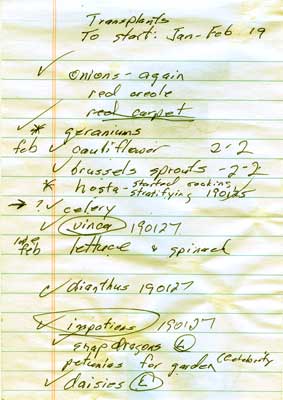 Transplants
To start: Jan-Feb 19
✓ onions - again
red creole
red carpet
✓ * geraniums
feb ✓ cauliflower 2-2
✓ brussels sprouts -2-2
* hosta - started soaking,
stratifying 190125
→ ? ✓ celery
✓ vinca 190127
feb lettuce & spinach
✓ dianthus 190127
✓ impatiens 190127
✓ snapdragons
petunias for garden (celebrity
✓ daisies